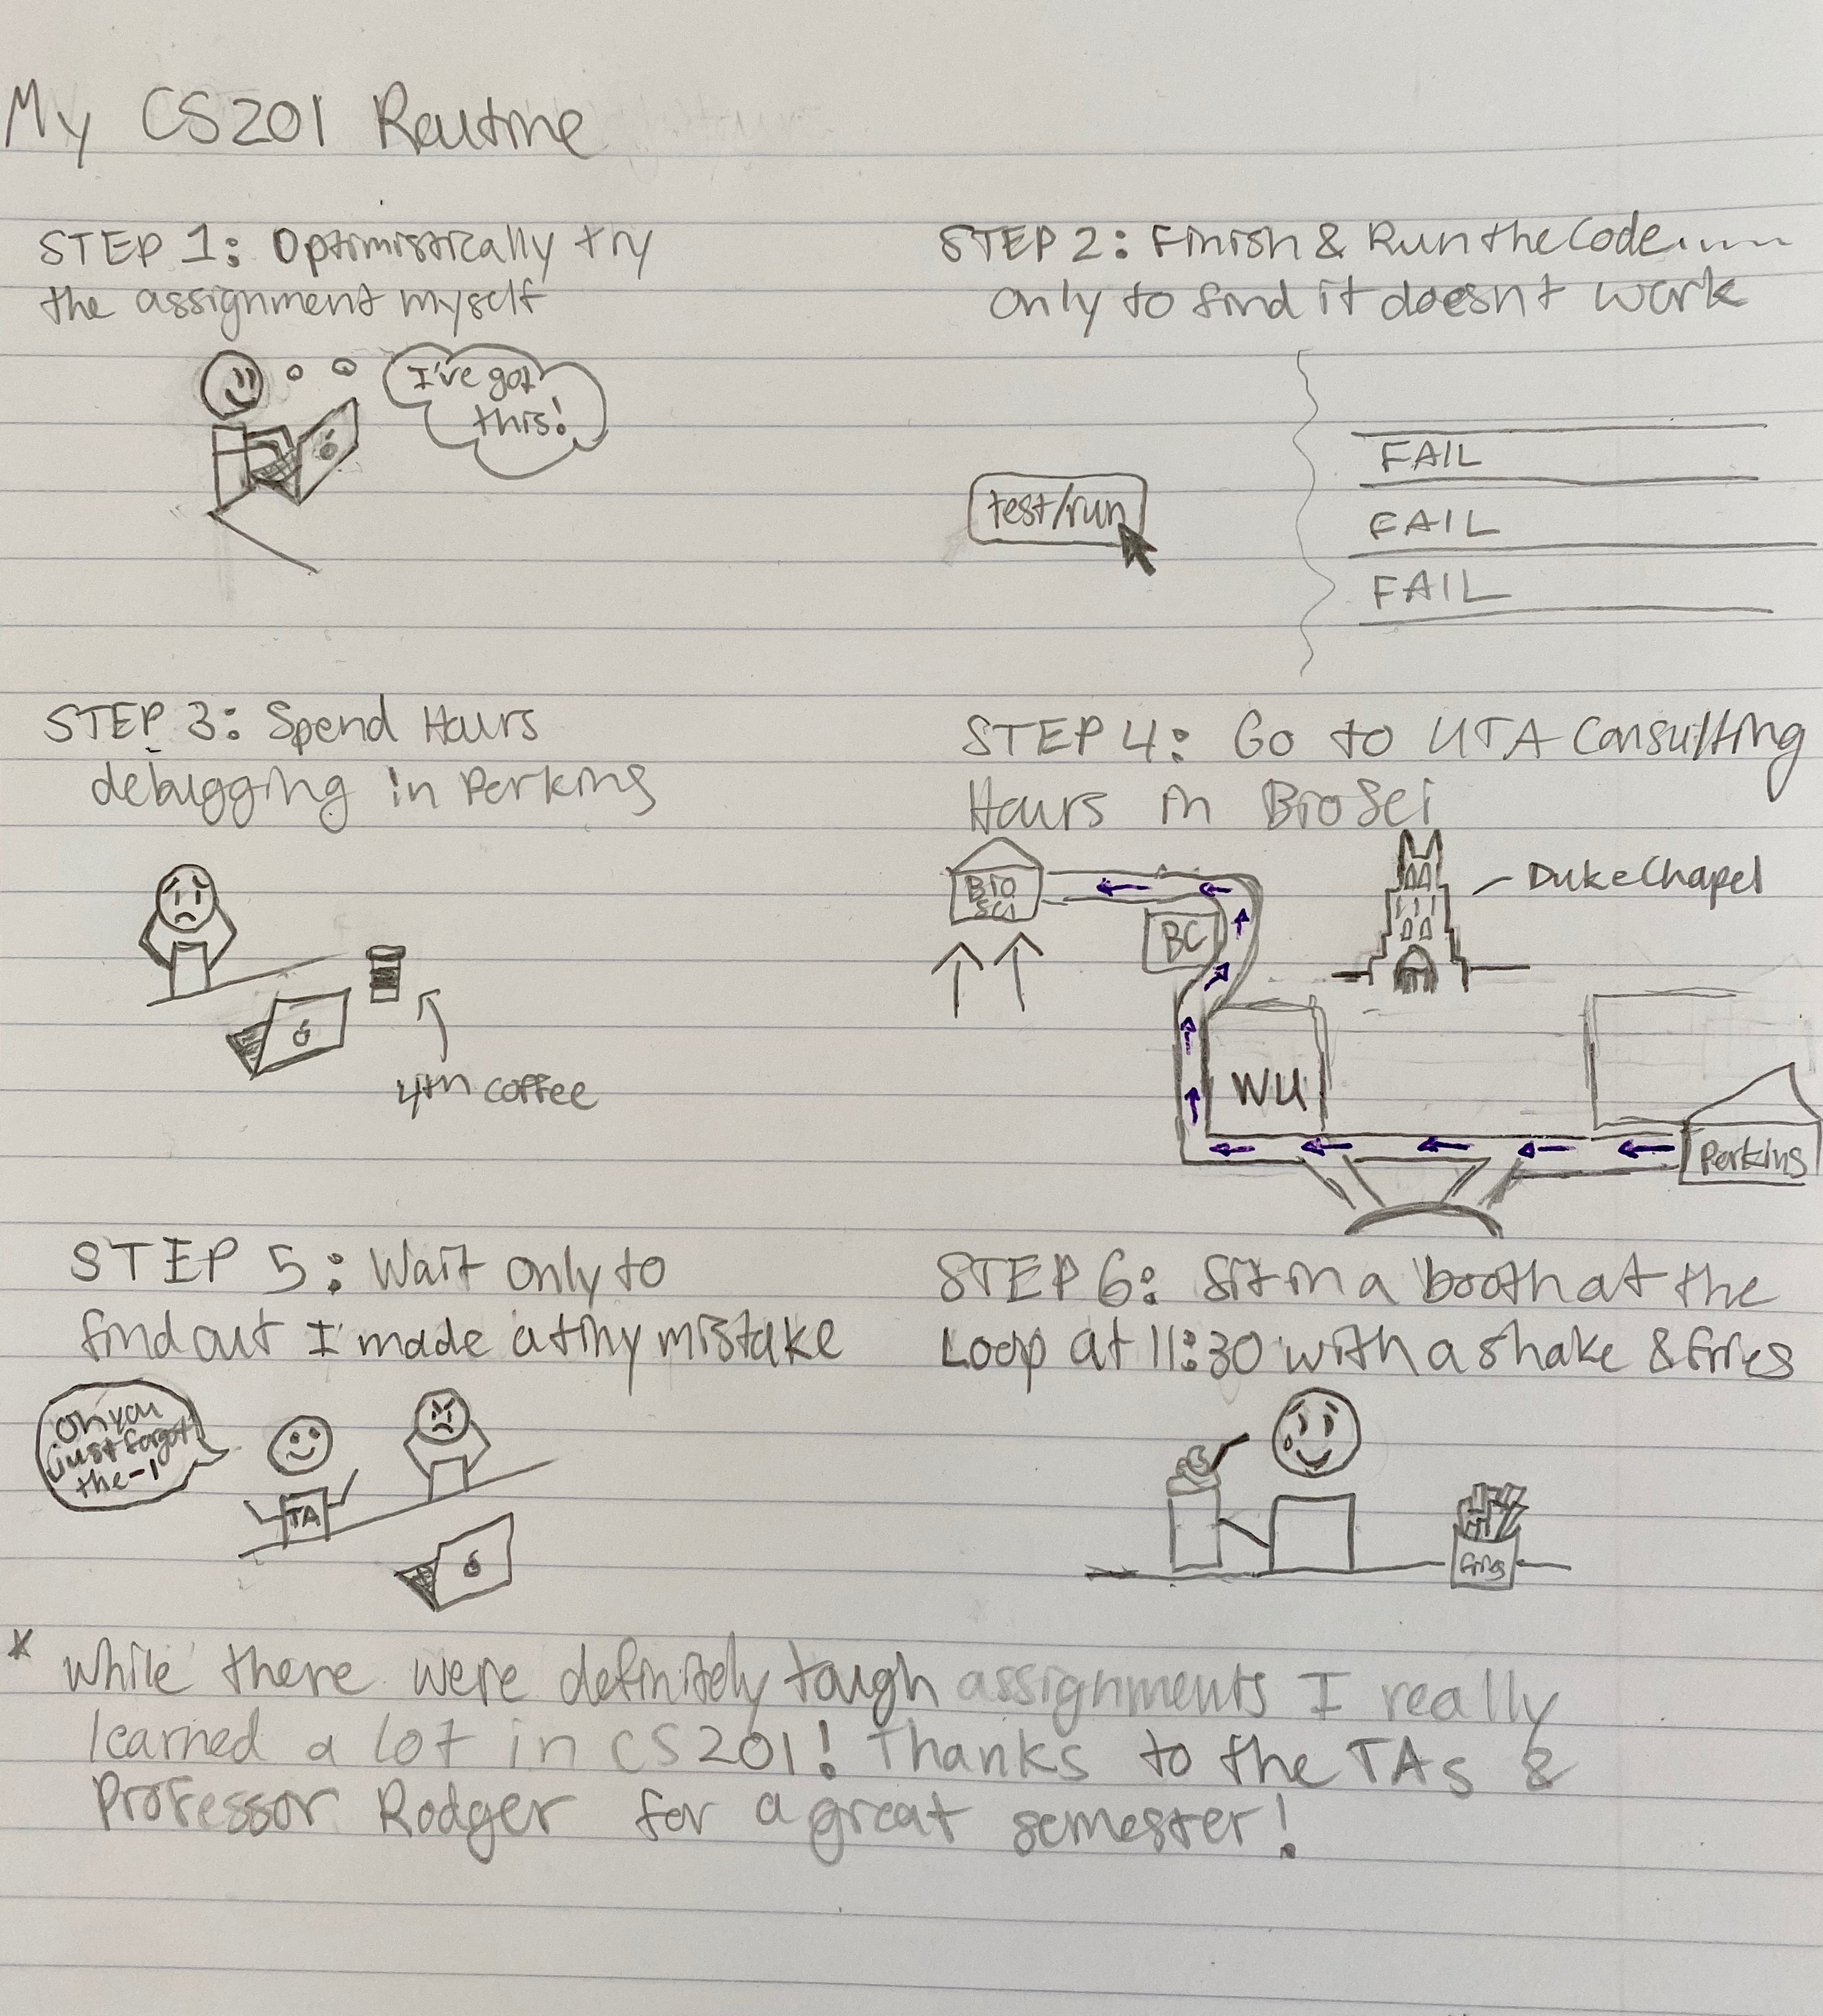 My CS201 Routine
STEP 1: Optimistically try
the assignment myself
I've got
this!
STEP 2: Finish & Run the Code.....
only to find it doesnt work
test/run
FAIL
FAIL
FAIL
STEP 3: Spend Hours
debugging in Perkins
4th coffee
STEP 4: Go to UTA Consulting
Hours in BioSci
BIO
SCI
BC
Duke Chapel
WU
Perkins
STEP 5: Wait only to
find out I made a tiny mistake
Oh you
just forgot
the -1
TA
STEP 6: Sit in a booth at the
Loop at 11:30 with a shake & fries
fries
* While there were definitely tough assignments I really
learned a lot in CS201! Thanks to the TAs &
Professor Rodger for a great semester!